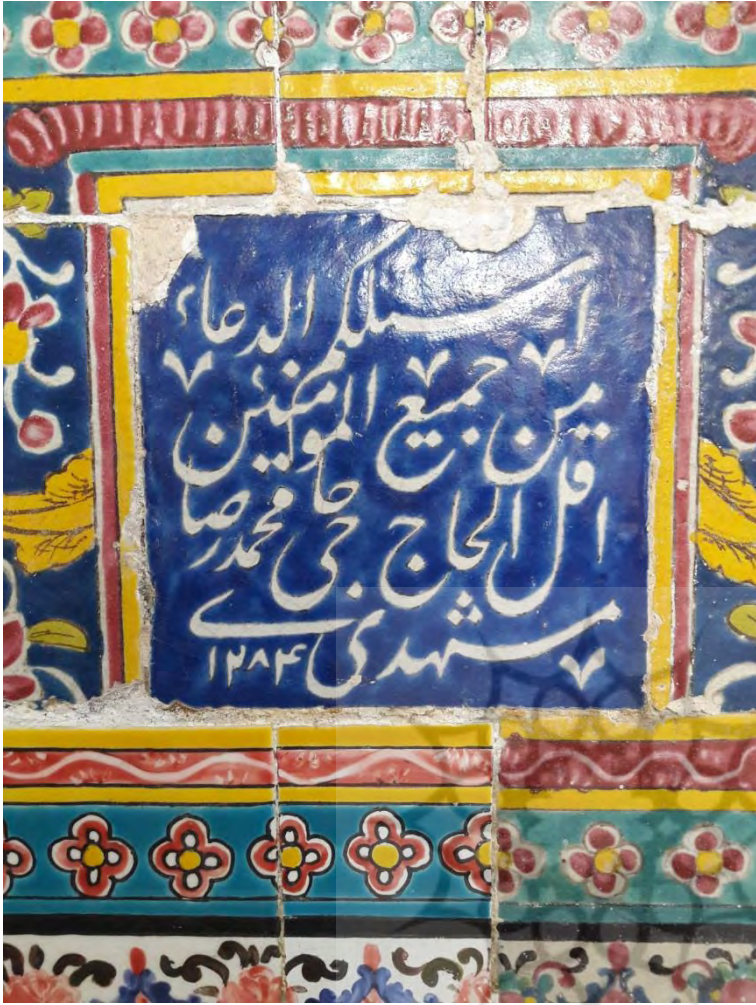 اسئلکم الدعاء
من جمیع المومنین
اقل الحاج حاجی محمد رضا
مشهدی
۱۲۸۴